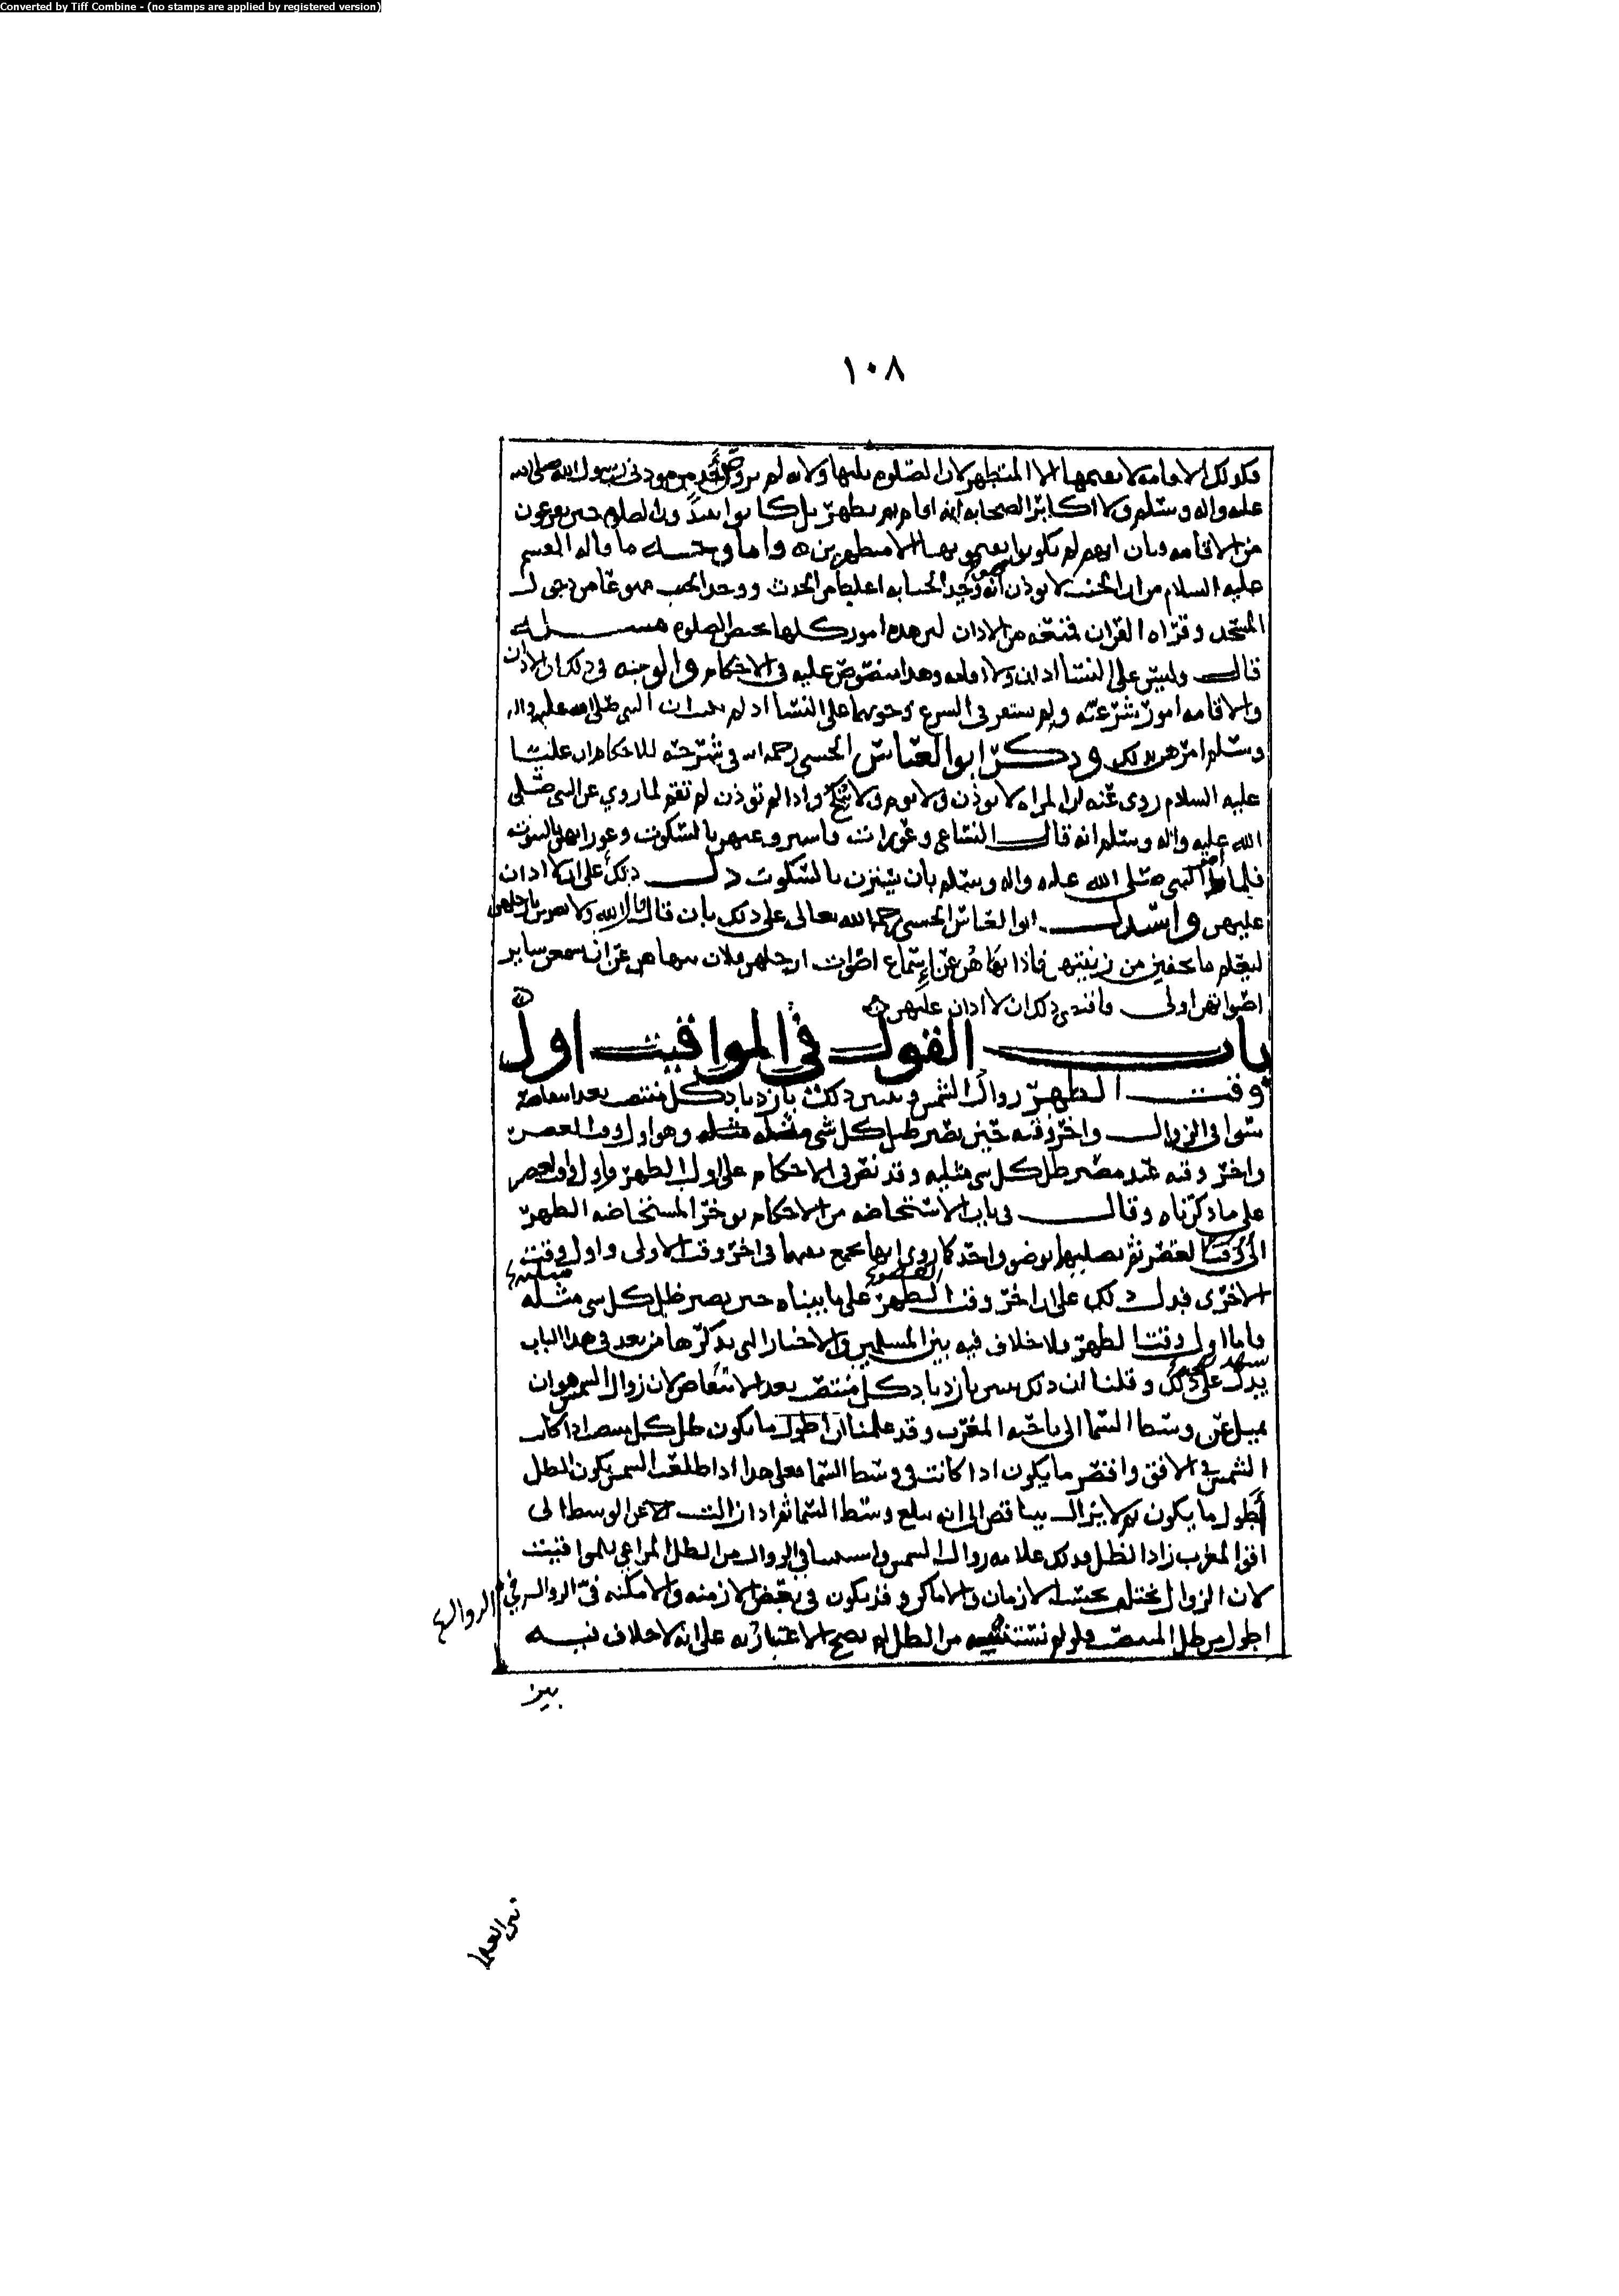 Converted by Tiff Combine - (no stamps are applied by registered version)
١٠٨
فكذلك الاقامه لا يقيمها الا المتطهر لان الصلوه تليها ولانه لم يرو عن احد من موذني رسول الله صلى الله
عليه واله وسلم ولا اكابر الصحابه انه اقام ثم تطهر بل كانوا يبتدون الصلوه حين يفرغون
من الاقامه وبان انهم لم يكونوا يقيمون بها الا متطهرين ه واما وجه ما قاله القسم
عليه السلام من ان الجنب لا يوذن انه وجد الجنابه اغلظ من الحدث ووجد الجنب ممنوعا من دخول
المسجد وقراه القران فمنعه من الاذان لان هذه امور كلها تختص الصلوه مسـلـه
قال وليس على النسا اذان ولا اقامه وهذا منصوص عليه في الاحكام والوجه في ذلك ان الاذان
والاقامه امور شرعيه ولم يستقر في الشرع وجوبهما على النسا اذ لم يثبت ان النبي صلى الله عليه واله
وسلم امرهن بذلك وذكر ابو العباس الحسني رحمه الله في شرحه للاحكام ان عليا
عليه السلام روي عنه ان المراه لا توذن ولا توم ولا تنكح واذا لم توذن لم تقم لما روي عن النبي صلى
الله عليه واله وسلم انه قال النسا عي وعورات فاستروا عيهن بالسكوت وعوراتهن بالبيوت
فلما امر النبي صلى الله عليه واله وسلم بان يسترن بالسكوت دل ذلك على ان لا اذان
عليهن واستدل ابو العباس الحسني رحمه الله تعالى على ذلك بان قال قال الله ولا يضربن بارجلهن
ليعلم ما يخفين من زينتهن فاذا نهاهن عن استماع اصوات ارجلهن فلان ينهاهن عن ان يسمعن ساير
اصواتهن اولى فافتدى ذلك ان لا اذان عليهن ه
باب القول في المواقيت اول
وقت الظهر زوال الشمس ويتبين ذلك بازدياد كل منتصب بعد انتقاصه
سوا في الزوال واخر وقته حين يصير ظل كل شي مثله وهو اول وقت العصر
واخر وقته عند مصير ظل كل شي مثليه وقد نص في الاحكام على اول الظهر واول وقت العصر
على ما ذكرناه وقال في باب الاستحاضه من الاحكام توخر المستحاضه الظهر
الى وقت العصر ثم تصليهما بوضو واحد كما روي انها تجمع بينهما في اخر وقت الاولى واول وقت
الاخرى فدل ذلك على ان اخر وقت الظهر على ما بيناه حين يصير ظل كل شي مثله
فاما اول وقت الظهر فلا خلاف فيه بين المسلمين والاخبار التي نذكرها من بعد في هذا الباب
يدل على ذلك وقلنا ان ذلك يتبين بازدياد كل منتصب بعد الانتقاص لان زوال الشمس هو ان
تميل عن وسط السما الى ناحيه المغرب وقد علمنا ان اطول ما يكون ظل كل منتصب اذا كانت
الشمس في الافق واقصر ما يكون اذا كانت في وسط السما فعلى هذا اذا طلعت الشمس يكون الظل
اطول ما يكون ثم لا يزال يتناقص الى ان يبلغ وسط السما ثم اذا زالت عن الوسط الى
افق المغرب زاد الظل فذلك علامه زوال الشمس واستثنينا في الزوال من الظل المراعى للمواقيت
لان الزوال يختلف بحسب الازمان والاماكن وقد يكون في بعض الازمنه والامكنه في الزوال
اطول من ظل المنتصب فلو لم نستثنيه من الظل لم يصح الاعتبار به على انه لا خلاف فيه
بين